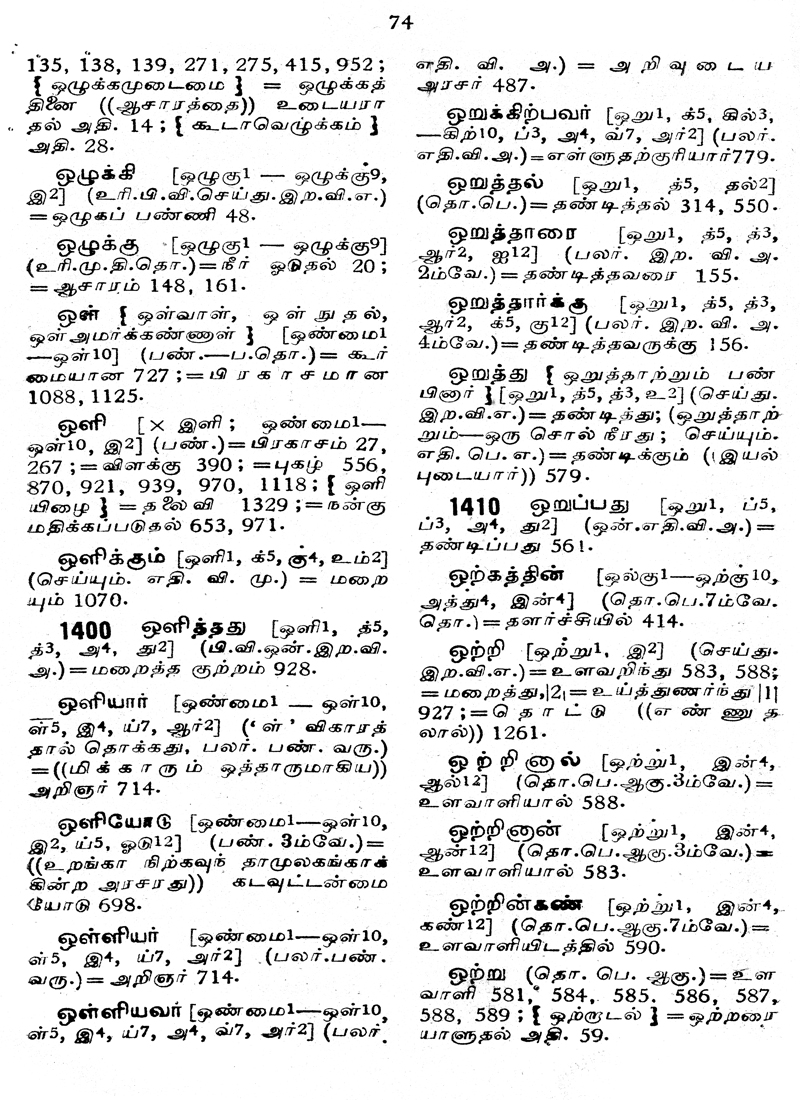 74
135, 138, 139, 271, 275, 415, 952 ;
{ ஒழுக்கமுடைமை } = ஒழுக்கத்
தினை ((ஆசாரத்தை)) உடையரா
தல் அதி. 14 ; { கூடாவொழுக்கம் }
அதி. 28.
ஒழுக்கி [ஒழுகு1 — ஒழுக்கு9,
இ2] (உரி.பி.வி.செய்து.இற.வி.எ.)
= ஒழுகப் பண்ணி 48.
ஒழுக்கு [ஒழுகு1 — ஒழுக்கு9]
(உரி.மு.தி.தொ.)=நீர் ஓடுதல் 20 ;
= ஆசாரம் 148, 161.
ஒள் { ஒள்வாள், ஒள் நுதல்,
ஒள்அமர்க்கண்ணாள் } [ஒண்மை1
—ஒள்10] (பண்.—ப.தொ.)= கூர்
மையான 727 ;= பிரகாசமான
1088, 1125.
ஒளி [× இளி ; ஒண்மை1—
ஒள்10, இ2] (பண்.)= பிரகாசம் 27,
267 ;= விளக்கு 390 ; =புகழ் 556,
870, 921, 939, 970, 1118 ; { ஒளி
யிழை } = தலைவி 1329 ;= நன்கு
மதிக்கப்படுதல் 653, 971.
ஒளிக்கும் [ஒளி1, க்5, கு4, உம்2]
(செய்யும். எதி. வி. மு.) = மறை
யும் 1070.
1400 ஒளித்தது [ஒளி1, த்5,
த்3, அ4, து2] (பி.வி.ஒன்.இற.வி.
அ.)= மறைத்த குற்றம் 928.
ஒளியார் [ஒண்மை1 — ஒள்10,
ள்5, இ4, ய்7, ஆர்2] (‘ள்’ விகாரத்
தால் தொக்கது, பலர். பண். வரு.)
= ((மிக்காரும் ஒத்தாருமாகிய))
அறிஞர் 714.
ஒளியோடு [ஒண்மை1—ஒள்10,
இ2, ய்5, ஓடு12] (பண். 3ம்வே.)=
((உறங்கா நிற்கவுந் தாமுலகங்காக்
கின்ற அரசரது)) கடவுட்டன்மை
யோடு 698.
ஒள்ளியர் [ஒண்மை1—ஒள்10,
ள்5, இ4, ய்7, அர்2] (பலர்.பண்.
வரு.)= அறிஞர் 714.
ஒள்ளியவர் [ஒண்மை1—ஒள்10,
ள்5, இ4, ய்7, அ4, வ்7, அர்2] (பலர்.
எதி. வி. அ.) = அறிவுடைய
அரசர் 487.
ஒறுக்கிற்பவர் [ஒறு1, க்5, கில்3,
—கிற்10, ப்3, அ4, வ்7, அர்2] (பலர்.
எதி.வி.அ.)=எள்ளுதற்குரியார்779.
ஒறுத்தல் [ஒறு1, த்5, தல்2]
(தொ.பெ.)=தண்டித்தல் 314, 550.
ஒறுத்தாரை [ஒறு1, த்5, த்3,
ஆர்2, ஐ12] (பலர். இற. வி. அ.
2ம்வே.)= தண்டித்தவரை 155.
ஒறுத்தார்க்கு [ஒறு1, த்5, த்3,
ஆர்2, க்5, கு12] (பலர். இற. வி. அ.
4ம்வே.)=தண்டித்தவருக்கு 156.
ஒறுத்து { ஒறுத்தாற்றும் பண்
பினார் } [ஒறு1, த்5, த்3, உ2] (செய்து.
இற.வி.எ.)= தண்டித்து; (ஒறுத்தாற்
றும்—ஒரு சொல் நீரது ; செய்யும்.
எதி. பெ. எ.)= தண்டிக்கும் ((இயல்
புடையார்)) 579.
1410 ஒறுப்பது [ஒறு1, ப்5,
ப்3, அ4, து2] (ஒன்.எதி.வி.அ.)=
தண்டிப்பது 561.
ஒற்கத்தின் [ஒல்கு1—ஒற்கு10,
அத்து4, இன்4] (தொ.பெ.7ம்வே.
தொ.)= தளர்ச்சியில் 414.
ஒற்றி [ஒற்று1, இ2] (செய்து.
இற.வி.எ.)= உளவறிந்து 583, 588;
= மறைத்து,|2|= உய்த்துணர்ந்து |1|
927 ;= தொட்டு ((எண்ணுத
லால்)) 1261.
ஒற்றினால் [ஒற்று1, இன்4,
ஆல்12] (தொ.பெ.ஆகு.3ம்வே.)=
உளவாளியால் 588.
ஒற்றினான் [ஒற்று1, இன்4,
ஆன்12] (தொ.பெ.ஆகு.3ம்வே.)=
உளவாளியால் 583.
ஒற்றின்கண் [ஒற்று1, இன்4,
கண்12] (தொ.பெ.ஆகு.7ம்வே.)=
உளவாளியிடத்தில் 590.
ஒற்று (தொ. பெ. ஆகு.)= உள
வாளி 581, 584, 585, 586, 587,
588, 589 ; { ஒற்றாடல் } = ஒற்றரை
யாளுதல் அதி. 59.